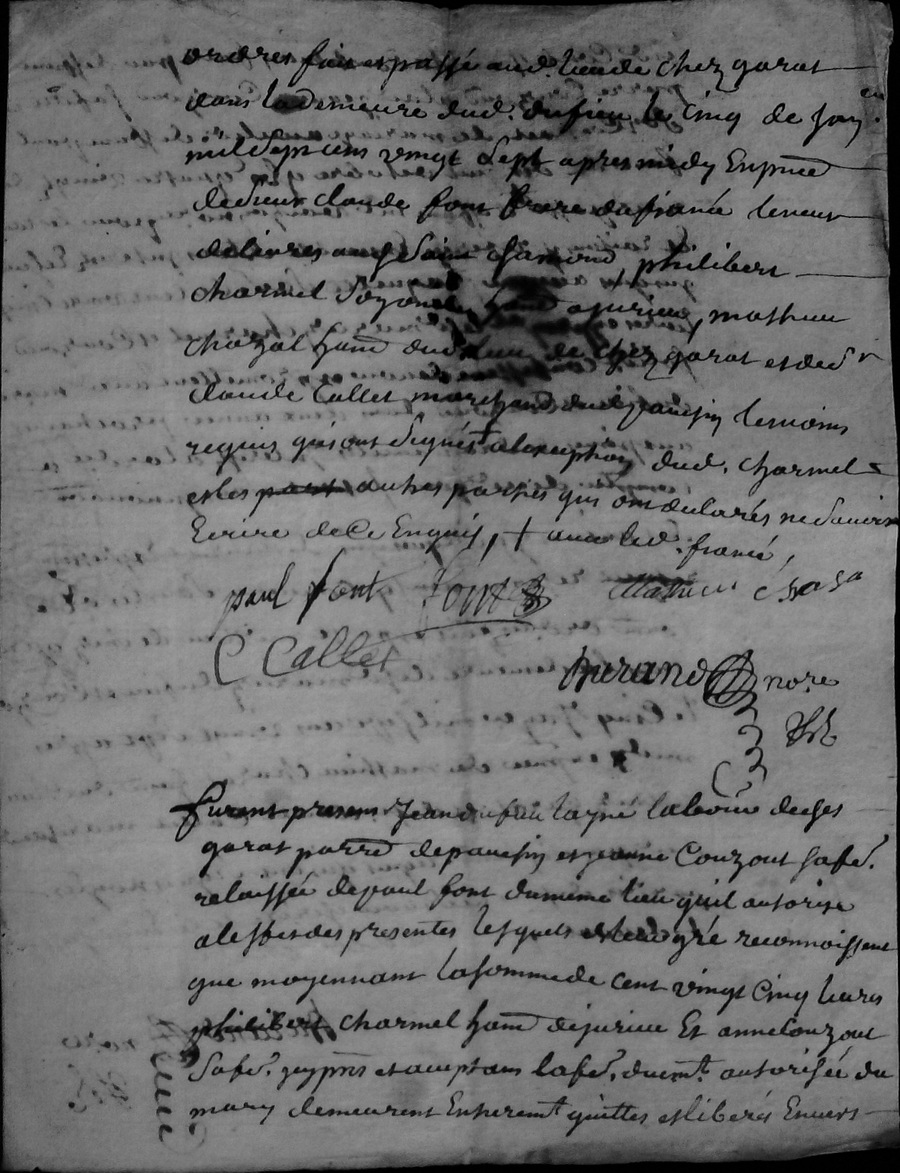 ordres fait et passé aud. lieu de chez garat
dans la demeure dud. dufieu le cinq de janv.
mil sept cens vingt sept apres midy En pnce
de sieur claude font frere du fiancé teneur
de livres aud. Saint chamond, philibert
charmel hand a jurieu, mathieu
chazal hand dud. lieu de chez garat et de sr
claude Callet marchand dud. tesmoins
requis qui ont signés + a lexception dud. charmel
et les part autres parties qui ont declarés ne scavoir
Ecrire de ce Enquis, + avec led. fiancé,
paul font font Mathieu Chaza
C Callet
Durand nore
furent presens Jean dufieu layné laboure de ches
garat parre de et jeanne Couzout sa fe.
relaissée de paul font du meme lieu quil autorise
a leffet des presentes lesquels de leur gré reconnoissent
que moyennant la somme de cent vingt cinq livres
philibert charmel hand de jurieu Et anne Couzout
sa fe. yci pns et acceptans la fe. duemt. autorisée du
mary demeurent Entieremt quittes et liberés Envers